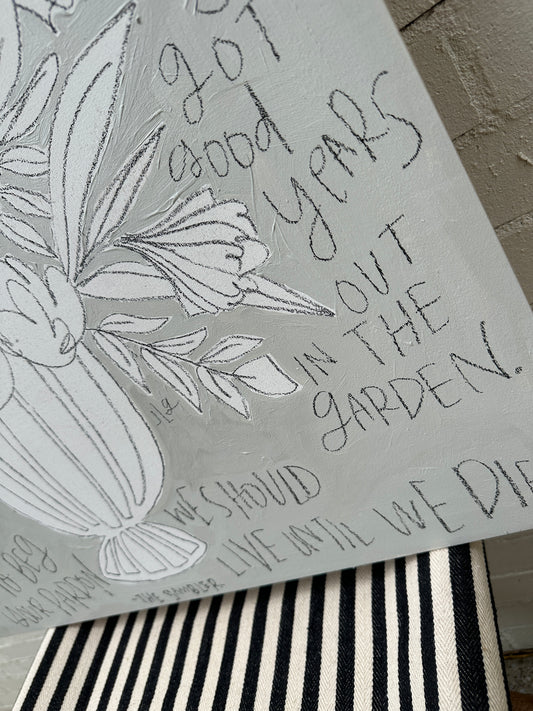 got
good
years
OUT
IN THE
gARDEN.
WE SHOULD
LIVE UNTIL WE DIE
BEG
YOUR PARDON
-THE RAMBLER